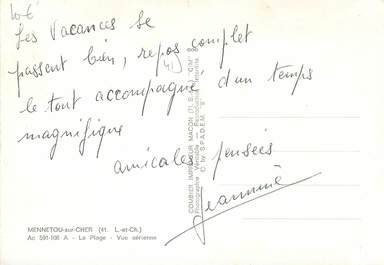 10€
Les Vacances se
passent bien, repos complet
41
le tout accompagné d'un temps
magnifique
amicales pensées
Jeannine
MENNETOU-sur-CHER (41. L.-et-Ch.)
Ac 591-106 A - La Plage - Vue aérienne
COMBIER IMPRIMEUR MACON (71, S.-&-L.) "CIM"
Photographie Véritable - Reproduction interdite
© by S.P.A.D.E.M.